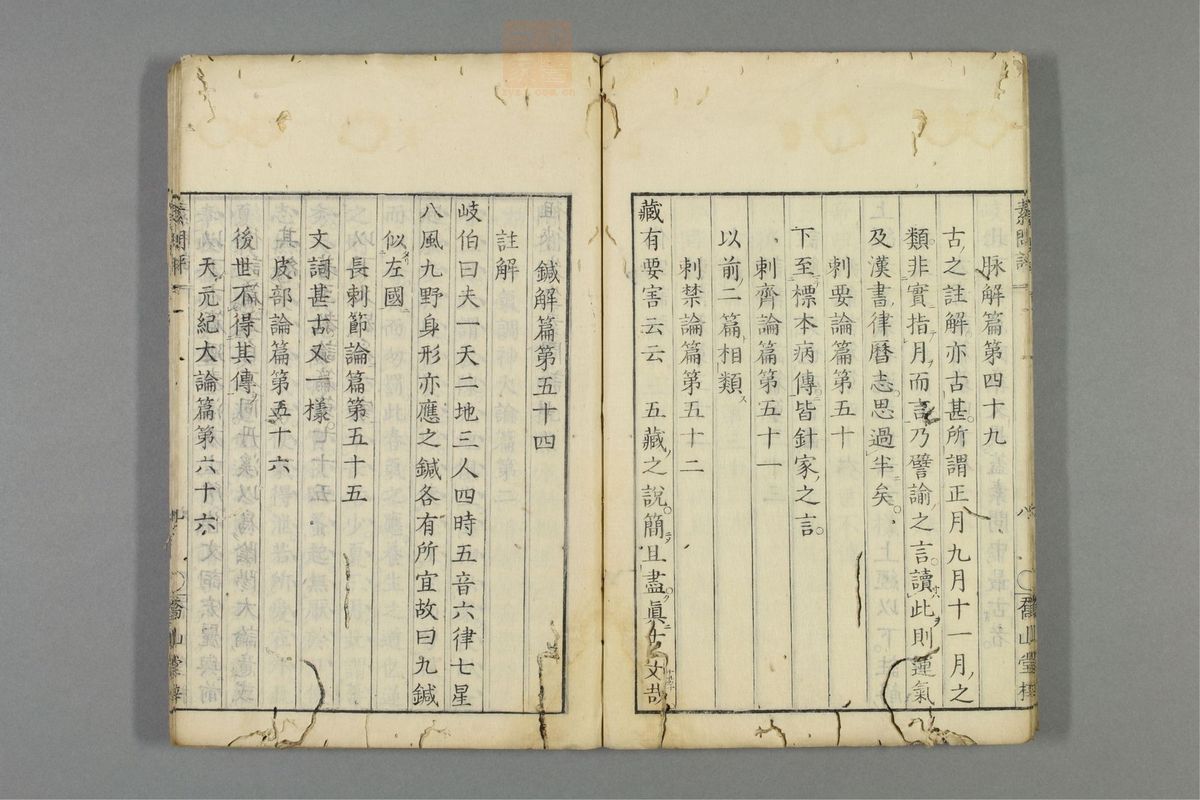 脉解篇第四十九
古之註解亦古甚所謂正月九月十一月之
類非實指月而言乃譬諭之言讀此則運氣
及漢書律曆志思過半矣
刺要論篇第五十
下至標本病傳皆針家之言
刺齊論篇第五十一
以前二篇相類
刺禁論篇第五十二
藏有要害云云 五藏之說簡且盡眞古文哉
鍼解篇第五十四
註解
岐伯曰夫一天二地三人四時五音六律七星
八風九野身形亦應之鍼各有所宜故曰九鍼
似左國
長刺節論篇第五十五
文詞甚古又一樣
皮部論篇第五十六
後世不得其傳
天元紀大論篇第六十六